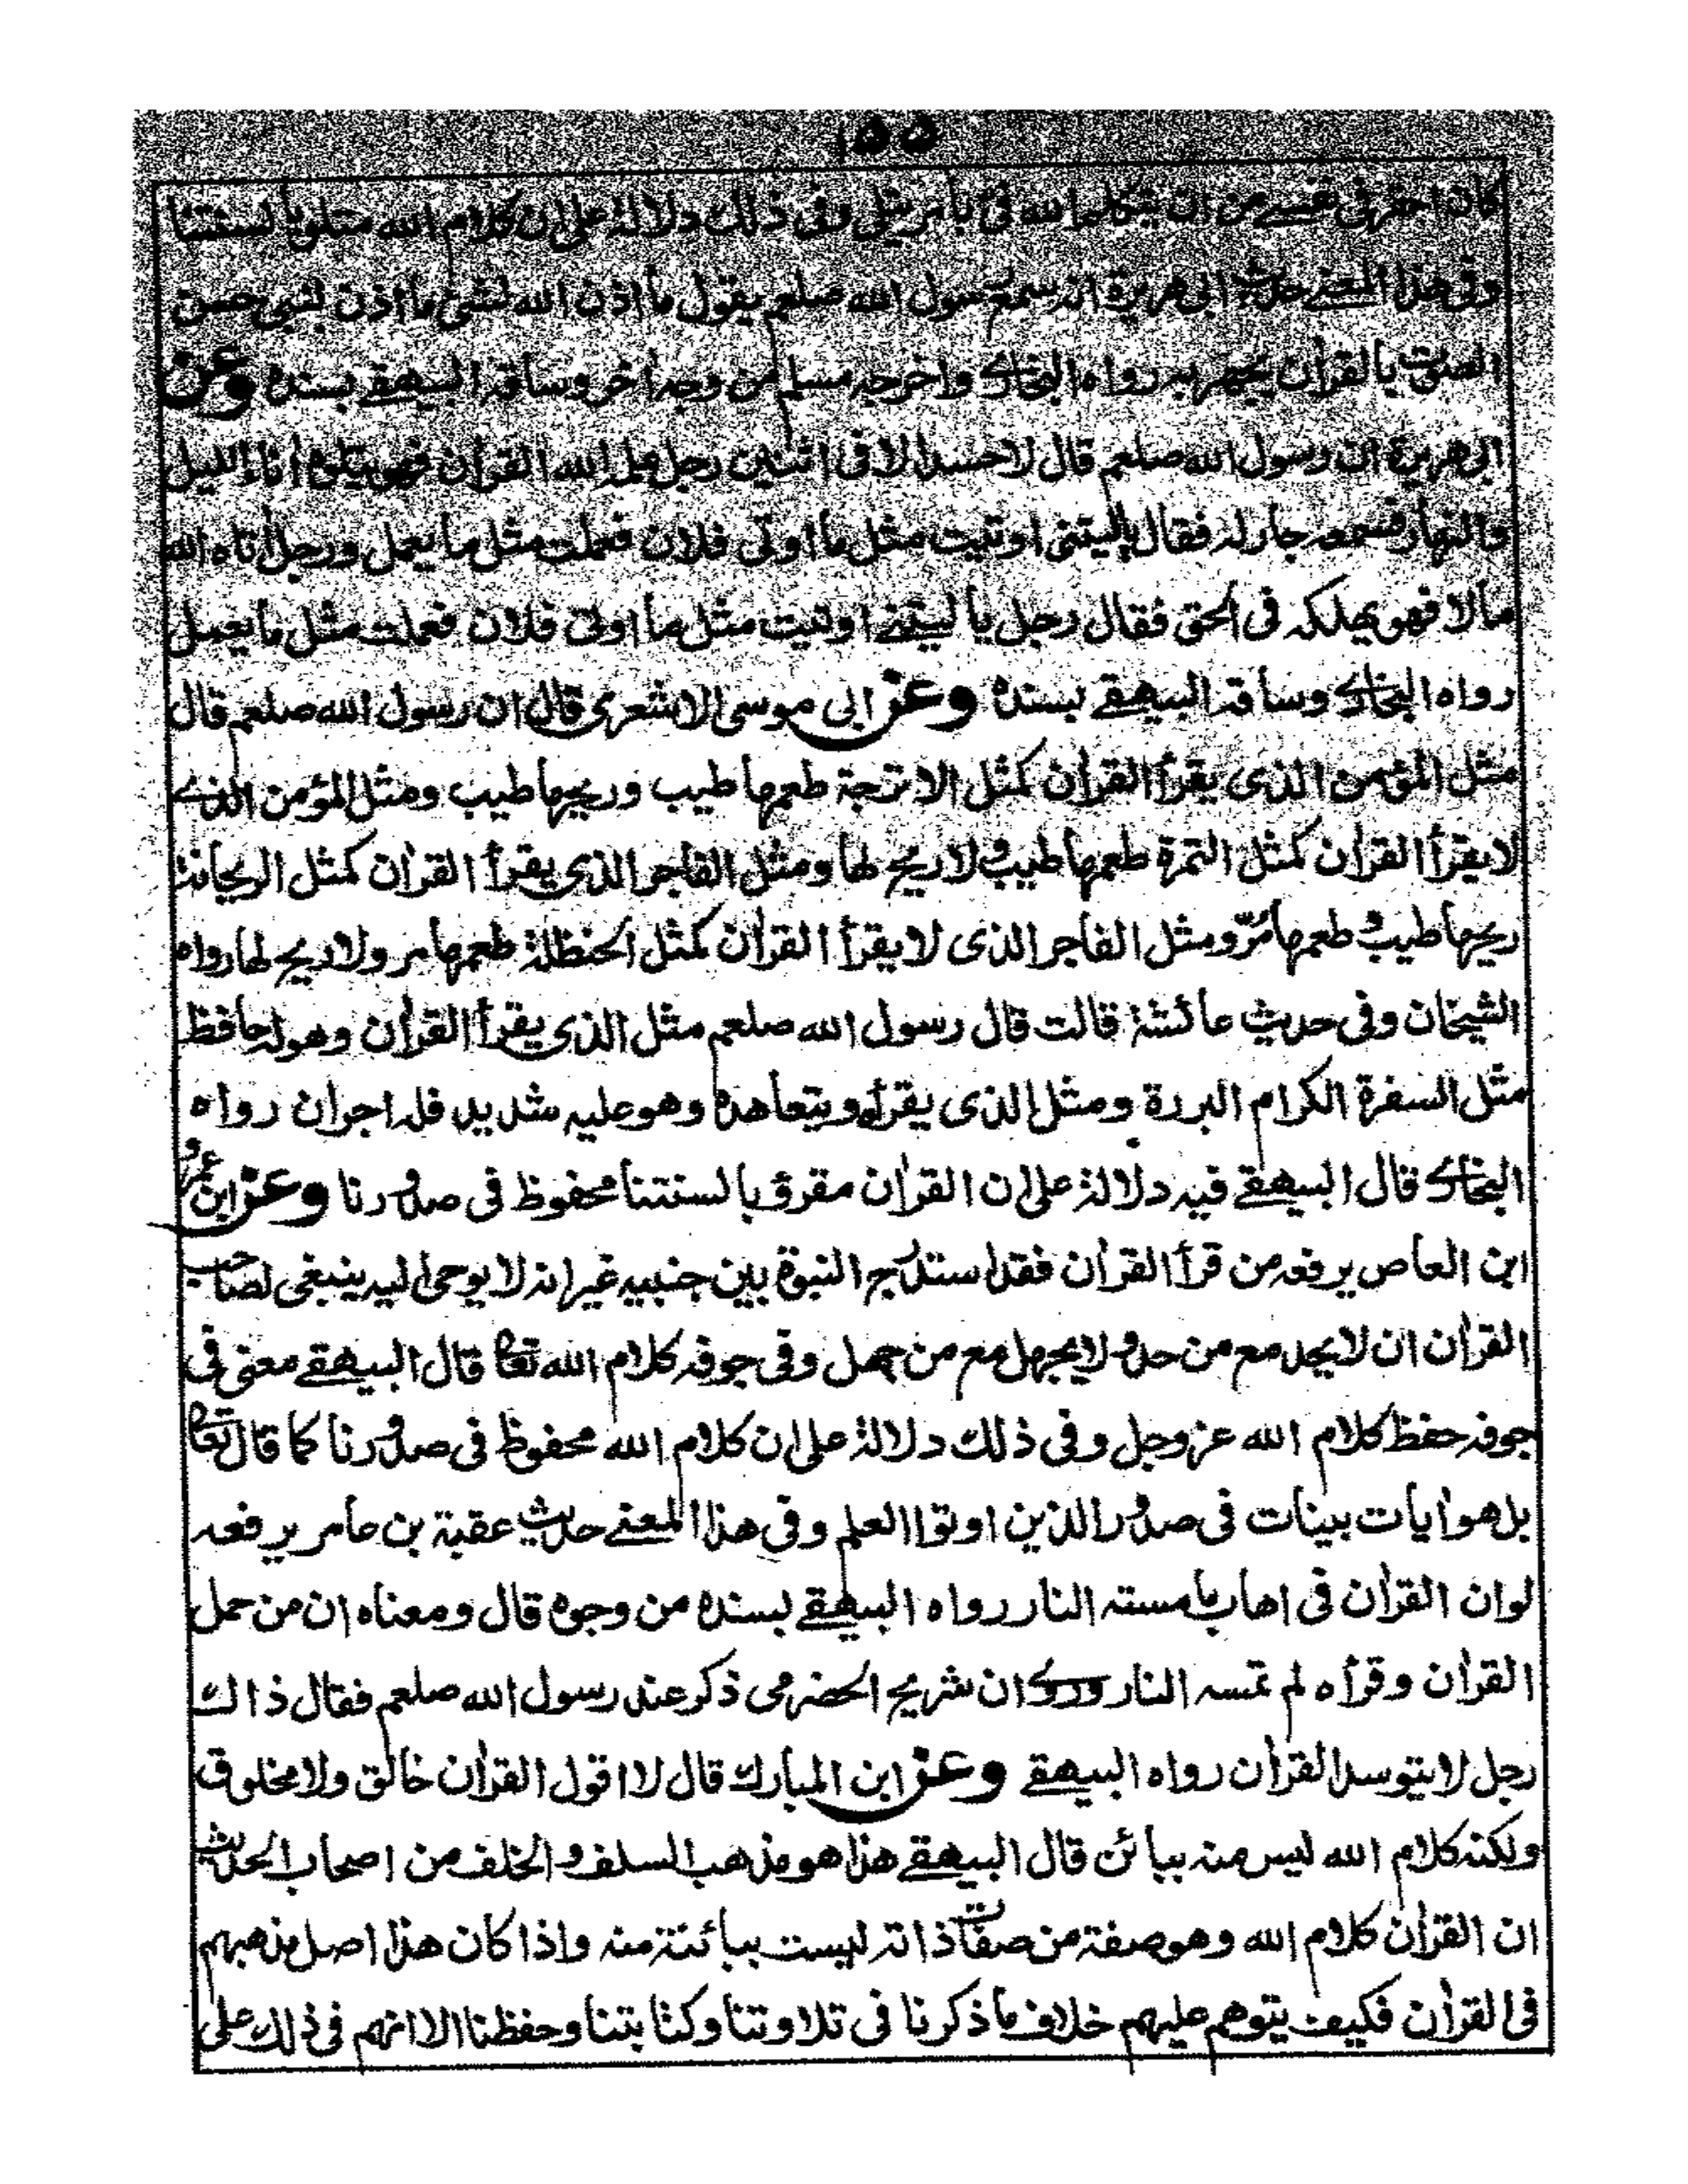 ١٥٥
كان احقر فى نفسى من ان يتكلم الله فى بامر يتلى وفى ذلك دلالة على ان كلام الله متلو بالسنتنا
وفى هذا المعنے حديث ابى هريرة انه سمع رسول الله صلعم يقول ما اذن الله لشئ ما اذن لنبى حسن
الصوت بالقران يجهر به رواه البخارى واخرجه مسلم من وجه اخر وساقه البيهقے بسنده وعن
ابى هريرة ان رسول الله صلعم قال لا حسد الا فى اثنين رجل علمه الله القران فهو يتلوه اناء الليل
والنهار فسمعه جار له فقال ياليتنى اوتيت مثل ما اوتى فلان فعملت مثل ما يعمل ورجل اتاه الله
مالا فهو يهلكه فى الحق فقال رجل يا ليتنے اوتيت مثل ما اوتى فلان فعملت مثل ما يعمل
رواه البخارى وساقه البيهقے بسنده وعن ابى موسى الاشعرى قال ان رسول الله صلعم قال
مثل المؤمن الذى يقرأ القران كمثل الاترجة طعمها طيب وريحها طيب ومثل المؤمن الذے
لا يقرأ القران كمثل التمرة طعمها طيب ولا ريح لها ومثل الفاجر الذى يقرأ القران كمثل الريحانة
ريحها طيب وطعمها مُرّ ومثل الفاجر الذى لا يقرأ القران كمثل الحنظلة طعمها مر ولا ريح لها رواه
الشيخان وفى حديث عائشة قالت قال رسول الله صلعم مثل الذى يقرأ القران وهو له حافظ
مثل السفرة الكرام البررة ومثل الذى يقرأه ويتعاهده وهو عليه شديد فله اجران رواه
البخارى قال البيهقے فيه دلالة على ان القران مقرؤ بالسنتنا محفوظ فى صدورنا وعن ابن عمرو
ابن العاص يرفعه من قرأ القران فقد استدرج النبوة بين جنبيه غير انه لا يوحى اليه ينبغى لصاحب
القران ان لا يجد مع من حد ولا يجهل مع من جهل وفى جوفه كلام الله تعالى قال البيهقے معنى فى
جوفه حفظ كلام الله عز وجل وفى ذلك دلالة على ان كلام الله محفوظ فى صدورنا كما قال تعالى
بل هو ايات بينات فى صدور الذين اوتوا العلم وفى هذا المعنے حديث عقبة بن عامر يرفعه
لو ان القران فى اهاب ما مسته النار رواه البيهقے بسنده من وجوه قال ومعناه ان من حمل
القران وقرأه لم تمسه النار وروى ان شريح الحضرمى ذكر عند رسول الله صلعم فقال ذاك
رجل لا يتوسد القران رواه البيهقے وعن ابن المبارك قال لا اقول القران خالق ولا مخلوق
ولكنه كلام الله ليس منه ببائن قال البيهقے هذا هو مذهب السلف والخلف من اصحاب الحديث
ان القران كلام الله وهو صفة من صفات ذاته ليست ببائنة منه واذا كان هذا اصل مذهبهم
فى القران فكيف يتوهم عليهم خلاف ما ذكرنا فى تلاوتنا وكتابتنا وحفظنا الا انهم فى ذلك على